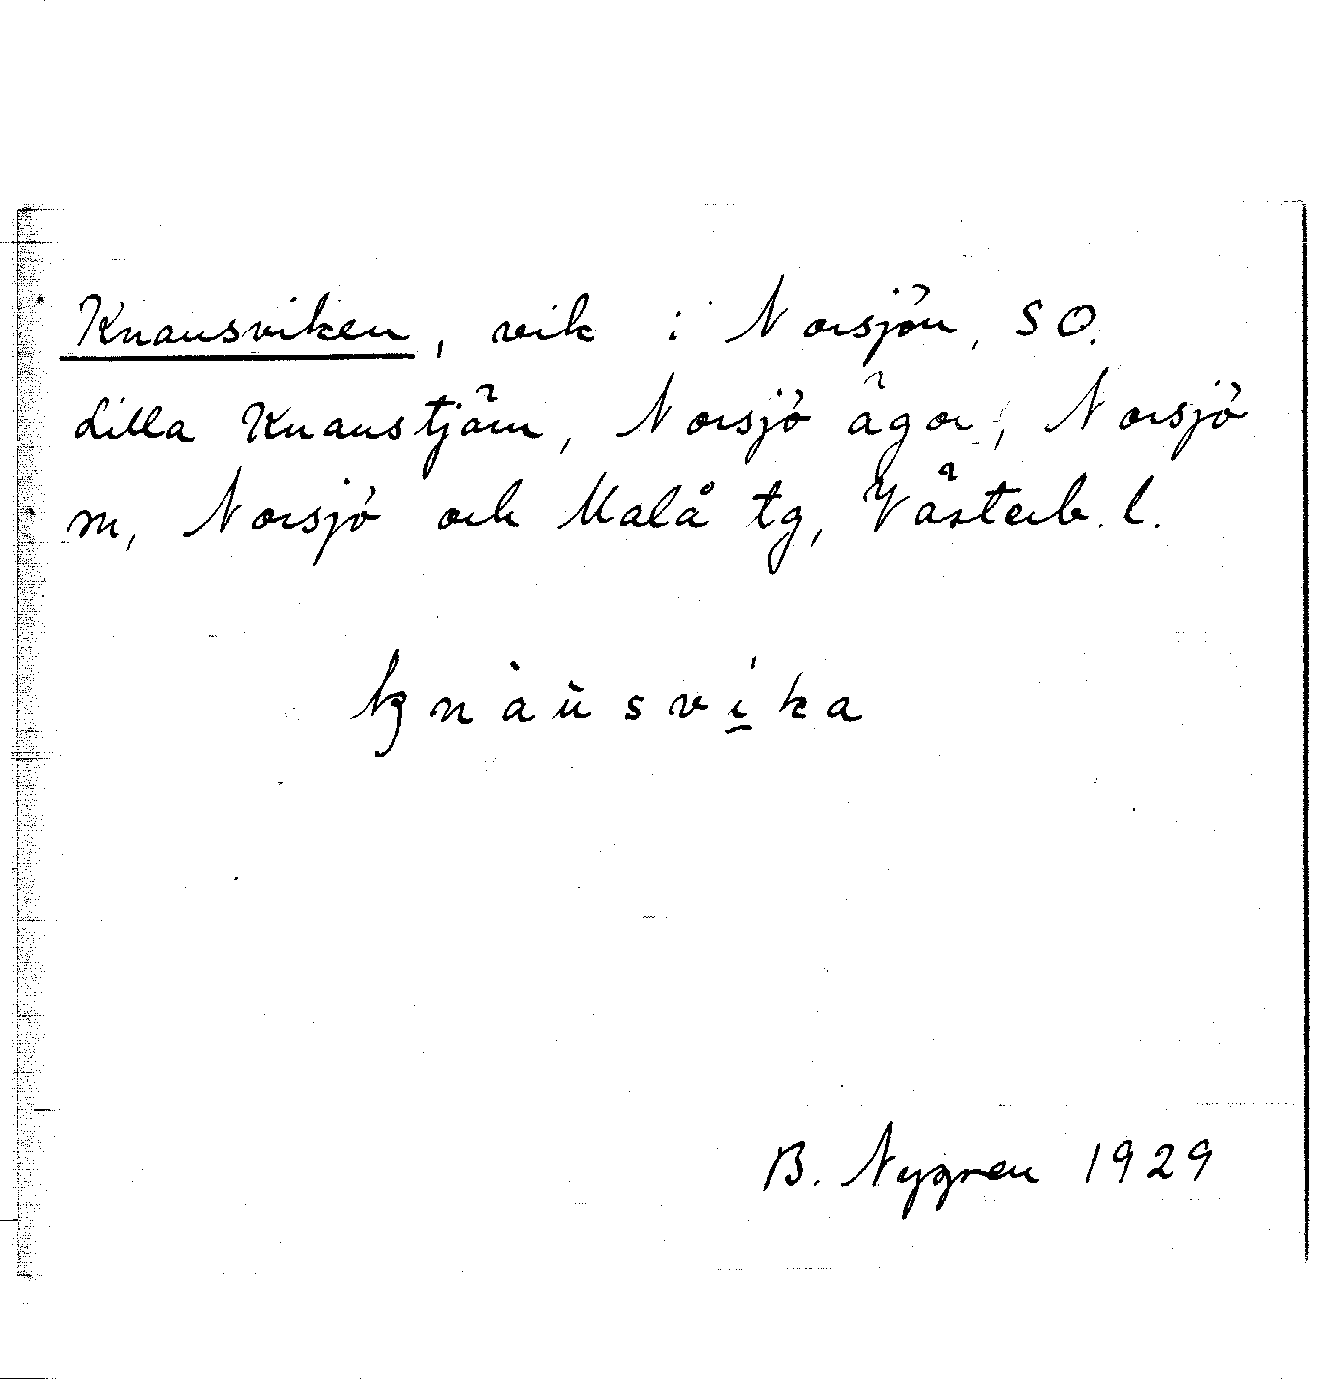 Knausviken, vik i Norsjön, SO.
Lilla Knaustjärn, Norsjö ägor, Norsjö
sn, Norsjö och Malå tg, Västerb. l.
knàùsvi̱ka
B. Nygren 1929